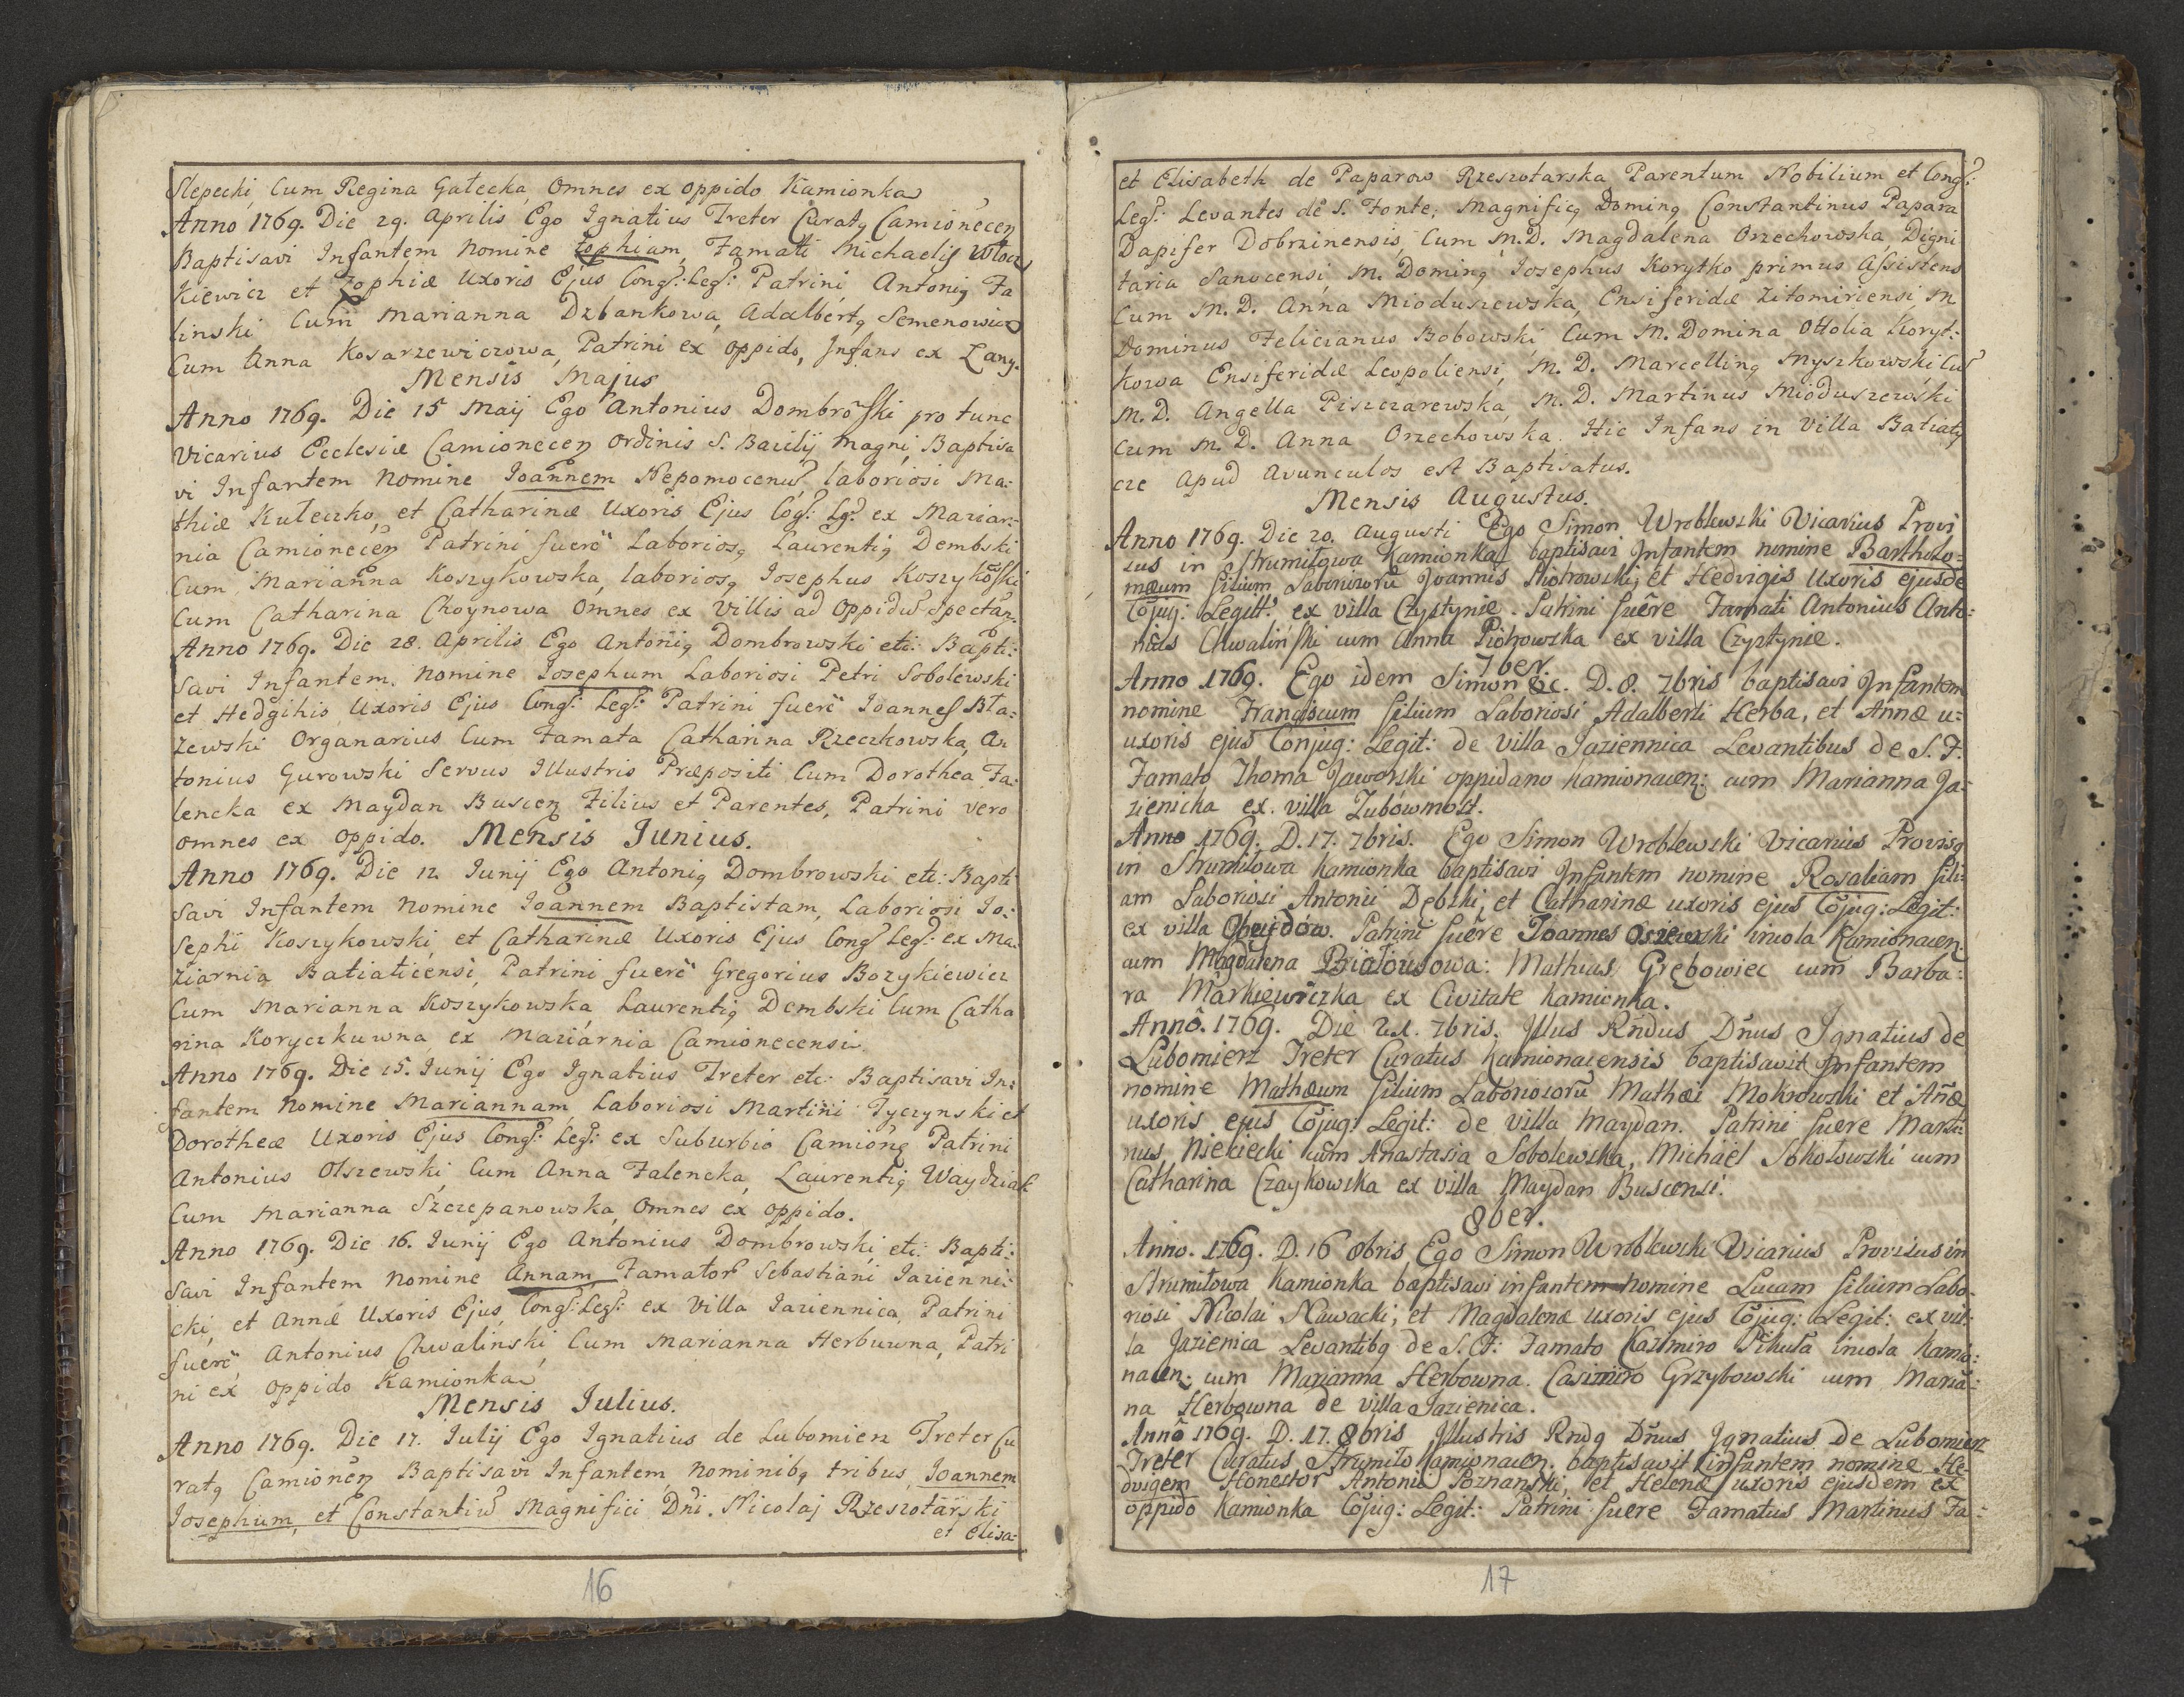 Slepecki, Cum Regina Gałecka, Omnes ex oppido Kamionka
Anno 1769. Die 29. Aprilis Ego Ignatius Treter Curatq Camionecen
Baptisavi Infantem Nomine Zophiam, Famati Michaelis Włocz
Kiewicz et Zophiæ Uxoris Ejus Congs: Legs: Patrini Antoniq Fa
linski Cum Marianna Dzbankowa, Adalbertq Semenowicz
Cum Anna Kosarzewiczowa, Patrini ex oppido, Infans ex Łany.
Mensis Majus
Anno 1769. Die 15 Maij Ego Antonius Dombrofski pro tunc
Vicarius Ecclesiæ Camionecen Ordinis S. Basilij Magni, Baptisa
vi Infantem Nomine Ioannem Nepomocenu, laboriosi Ma:
thiæ Kuleczko, et Catharinæ Uxoris Ejus Cogs: Lgs: ex Maziar:
nia Camionecen Patrini fuere Laboriosq Laurentiq Dembski
Cum Marianna Koszykowska, laboriosq Josephus Koszykofski
Cum Catharina Choynowa Omnes ex Villis ad Oppidu Spectan.
Anno 1769. Die 28. Aprilis Ego Antoniq Dombrowski etc: Bapti:
savi Infantem Nomine Iosephum Laboriosi Petri Sobolewski
et Hedgihis Uxoris Ejus Congs: Legs: Patrini fuere Ioannes Bła:
zewski Organarius Cum Famata Catharina Rzeczkowska, An
tonius Gurowski Servus Illustris Præpositi Cum Dorothea Fa:
lencka ex Maydan Buscen Filius et Parentes, Patrini vero
omnes ex oppido. Mensis Junius.
Anno 1769. Die 12 Iunij Ego Antoniq Dombrowski etc: Bapti
savi Infantem Nomine Ioannem Baptistam, Laboriosi Io:
sephi Koszykowski, et Catharinæ Uxoris Ejus Congs Legs: ex Ma
ziarnia Batiaticensi, Patrini fuere Gregorius Bozykiewicz
Cum Marianna Koszykowska, Laurentiq Dembski Cum Catha
rina Koryczkuwna ex Maziarnia Camionecensi
Anno 1769. Die 15. Iunij Ego Ignatius Treter etc: Baptisavi In:
fantem Nomine Mariannam, Laboriosi Martini Tyczynski et
Dorotheæ Uxoris Ejus Congs: Legs: ex Suburbio Camionq Patrini
Antonius Olszewski, Cum Anna Falencka, Laurentiq Waydziak
Cum Marianna Szczepanowska, Omnes ex oppido.
Anno 1769. Die 16. Iunij Ego Antonius Dombrowski etc: Bapti:
savi Infantem Nomine Annam Famator Sebastiani Iazienni:
cki, et Annæ Uxoris Ejus, Congs: Legs: ex Villa Iaziennica, Patrini
fuere Antonius Chwalinski, Cum Marianna Herbuwna, Patri
ni ex oppido Kamionka
Mensis Julius.
Anno 1769. Die 17. Iulij Ego Ignatius de Lubomierz Treter Cu
ratq Camionen Baptisavi Infantem, Nominibq tribus, Ioannem
Iosephum, et Constantiu Magnifici Dni. Nicolaj Rzeszotarski
et Elisa:
16
et Elisabeth de Paparow Rzeszotarska Parentum Nobilium et Congs:
Legs: Levantes de S. Fonte, Magnificq Dominq Constantinus Papara
Dapifer Dobrzinensis, Cum M.D. Magdalena Orzechowska, Digni
taria Sanocensi, M. Dominq Iosephus Korytko primus Assistens
Cum M. D. Anna Mioduszewska, Ensiferidæ Zitomiriensi, M
Dominus Felicianus Bobowski, Cum M. Domina Ottolia Koryt:
kowa Ensiferidæ Leopoliensi, M. D. Marcellinq Myszkowski Cu
M. D. Angella Piszczarewska, M. D. Martinus Mioduszewski
Cum M. D. Anna Orzechowska. Hic Infans in Villa Batiaty
cze apud avunculos est Baptisatus.
Mensis Augustus.
Anno 1769. Die 20. Augusti Ego Simon Wroblewski Vicarius Provi
sus in Strumiłowa Kamionka baptisavi Infantem nomine Bartholo=
mæum filium Laboriosorũ Joannis Piotrowski, et Hedvigis Uxoris ejusde
Cojug: Legitt: ex villa Czystynie. Patrini fuêre Famati Antonius Anto:
nius Chwaliński cum Anna Piotrowska ex villa Czystynie.
7ber.
Anno 1769. Ego idem Simon &c. D. 8. 7bris baptisavi Infantem
nomine Franciscum filium Laboriosi Adalberti Herba, et Annæ u=
uxoris ejus Conjug: Legit: de villa Jaziennica Levantibus de S. F.
Famato Thoma Jaworski oppidano Kamionacen: cum Marianna Ja=
zienicka ex villa Zubówmost.
Anno 1769. D. 17. 7bris. Ego Simon Wroblewski Vicarius Provisq
in Strumiłowa Kamionka baptisavi Infantem nomine Rosaliam fili=
am Laboriosi Antonii Dębski, et Catharinæ uxoris ejus Cojug: Legit:
ex villa Obeydów. Patrini fuêre Joannes incola Kamionacen.
cum Magdalena Mathias Grębowiec cum Barba:
ra Markiewiczka ex Civitate Kamionka.
Annô. 1769. Die 21. 7bris. Illus Rñdus Dñus Ignatius de
Lubomierz Treter Curatus Kamionacensis baptisavit Infantem
nomine Mathæum filium Laboriosorũ Mathæi Mokrowski et Añæ
uxoris ejus Cojug: Legit: de villa Maydan. Patrini fuere Marti
nus Niekiecki cum Anastasia Sobolewska, Michaël Sokołowski cum
Catharina Czaykowska ex villa Maydan Buscensi.
8ber.
Anno. 1769. D. 16 8bris Ego Simon Wroblewski Vicarius Provisus in
Strumiłowa Kamionka baptisavi infantem nomine Lucam filium Labo-
riosi Nicolai Nawacki, et Magdalenæ uxoris ejus Cojug: Legit: ex vil:
la Jazienica Levantibq de S. F: Famato Kazimiro Pikuła incola Kamio:
nacen: cum Marianna Herbowna. Casimiro Grzybowski cum Maria:
na Herbowna de villa Jazienica.
Annô 1769. D. 17. 8bris Illustris Rndq Dñus Ignatius De Lubomierz
Treter Curatus Strumiło Kamionacen. baptisavit infantem nomine He-
dvigem Honestor Antonii Poznański, et Helenæ uxoris ejusdem ex
oppido Kamionka Cojug: Legit: Patrini fuere Famatus Martinus Fa:
17